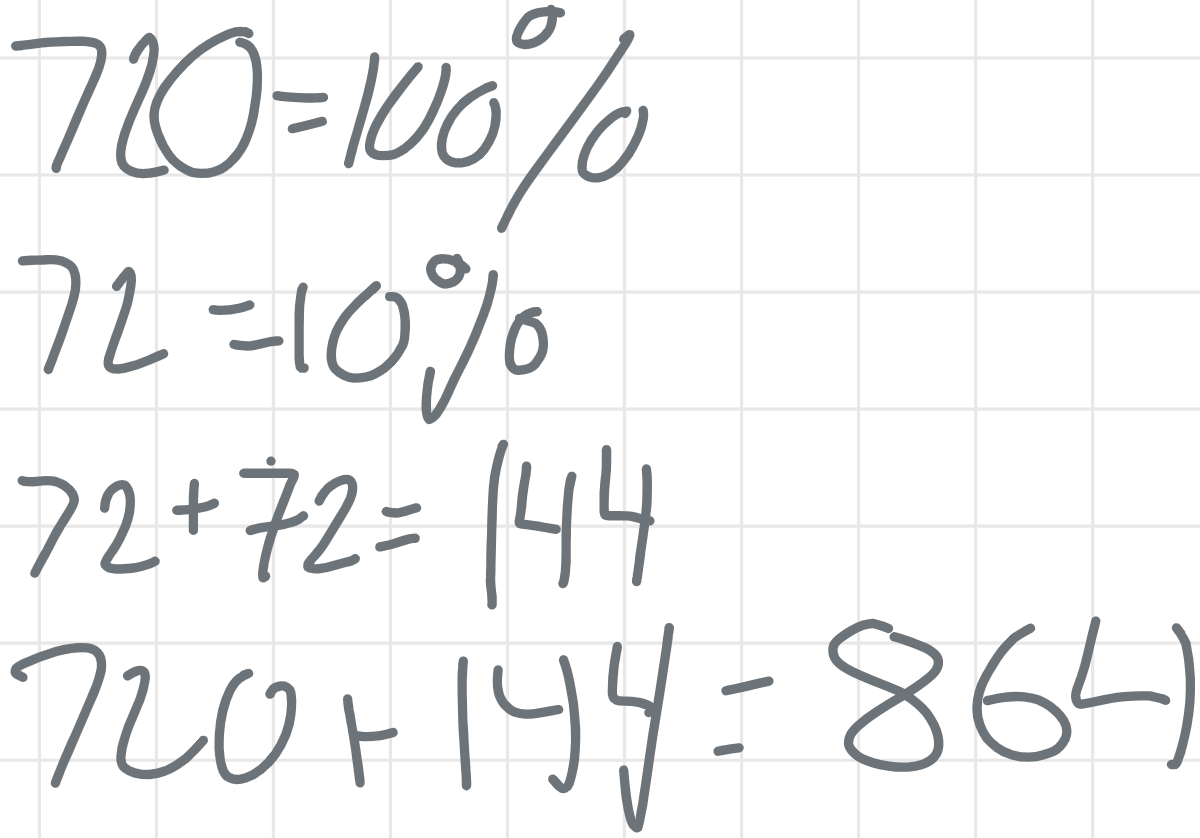 720=100%
72 =10%
72+72= 144
720+144 = 864